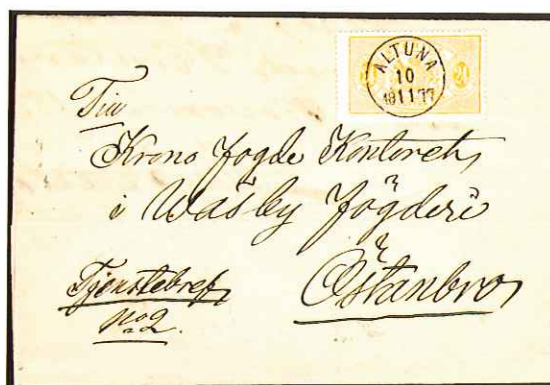 ALTUNA
10
11
77
Till
Krono fogde Kontoret
i Wåsby fögderi
Östanbro
Tjenstebref
No 2.